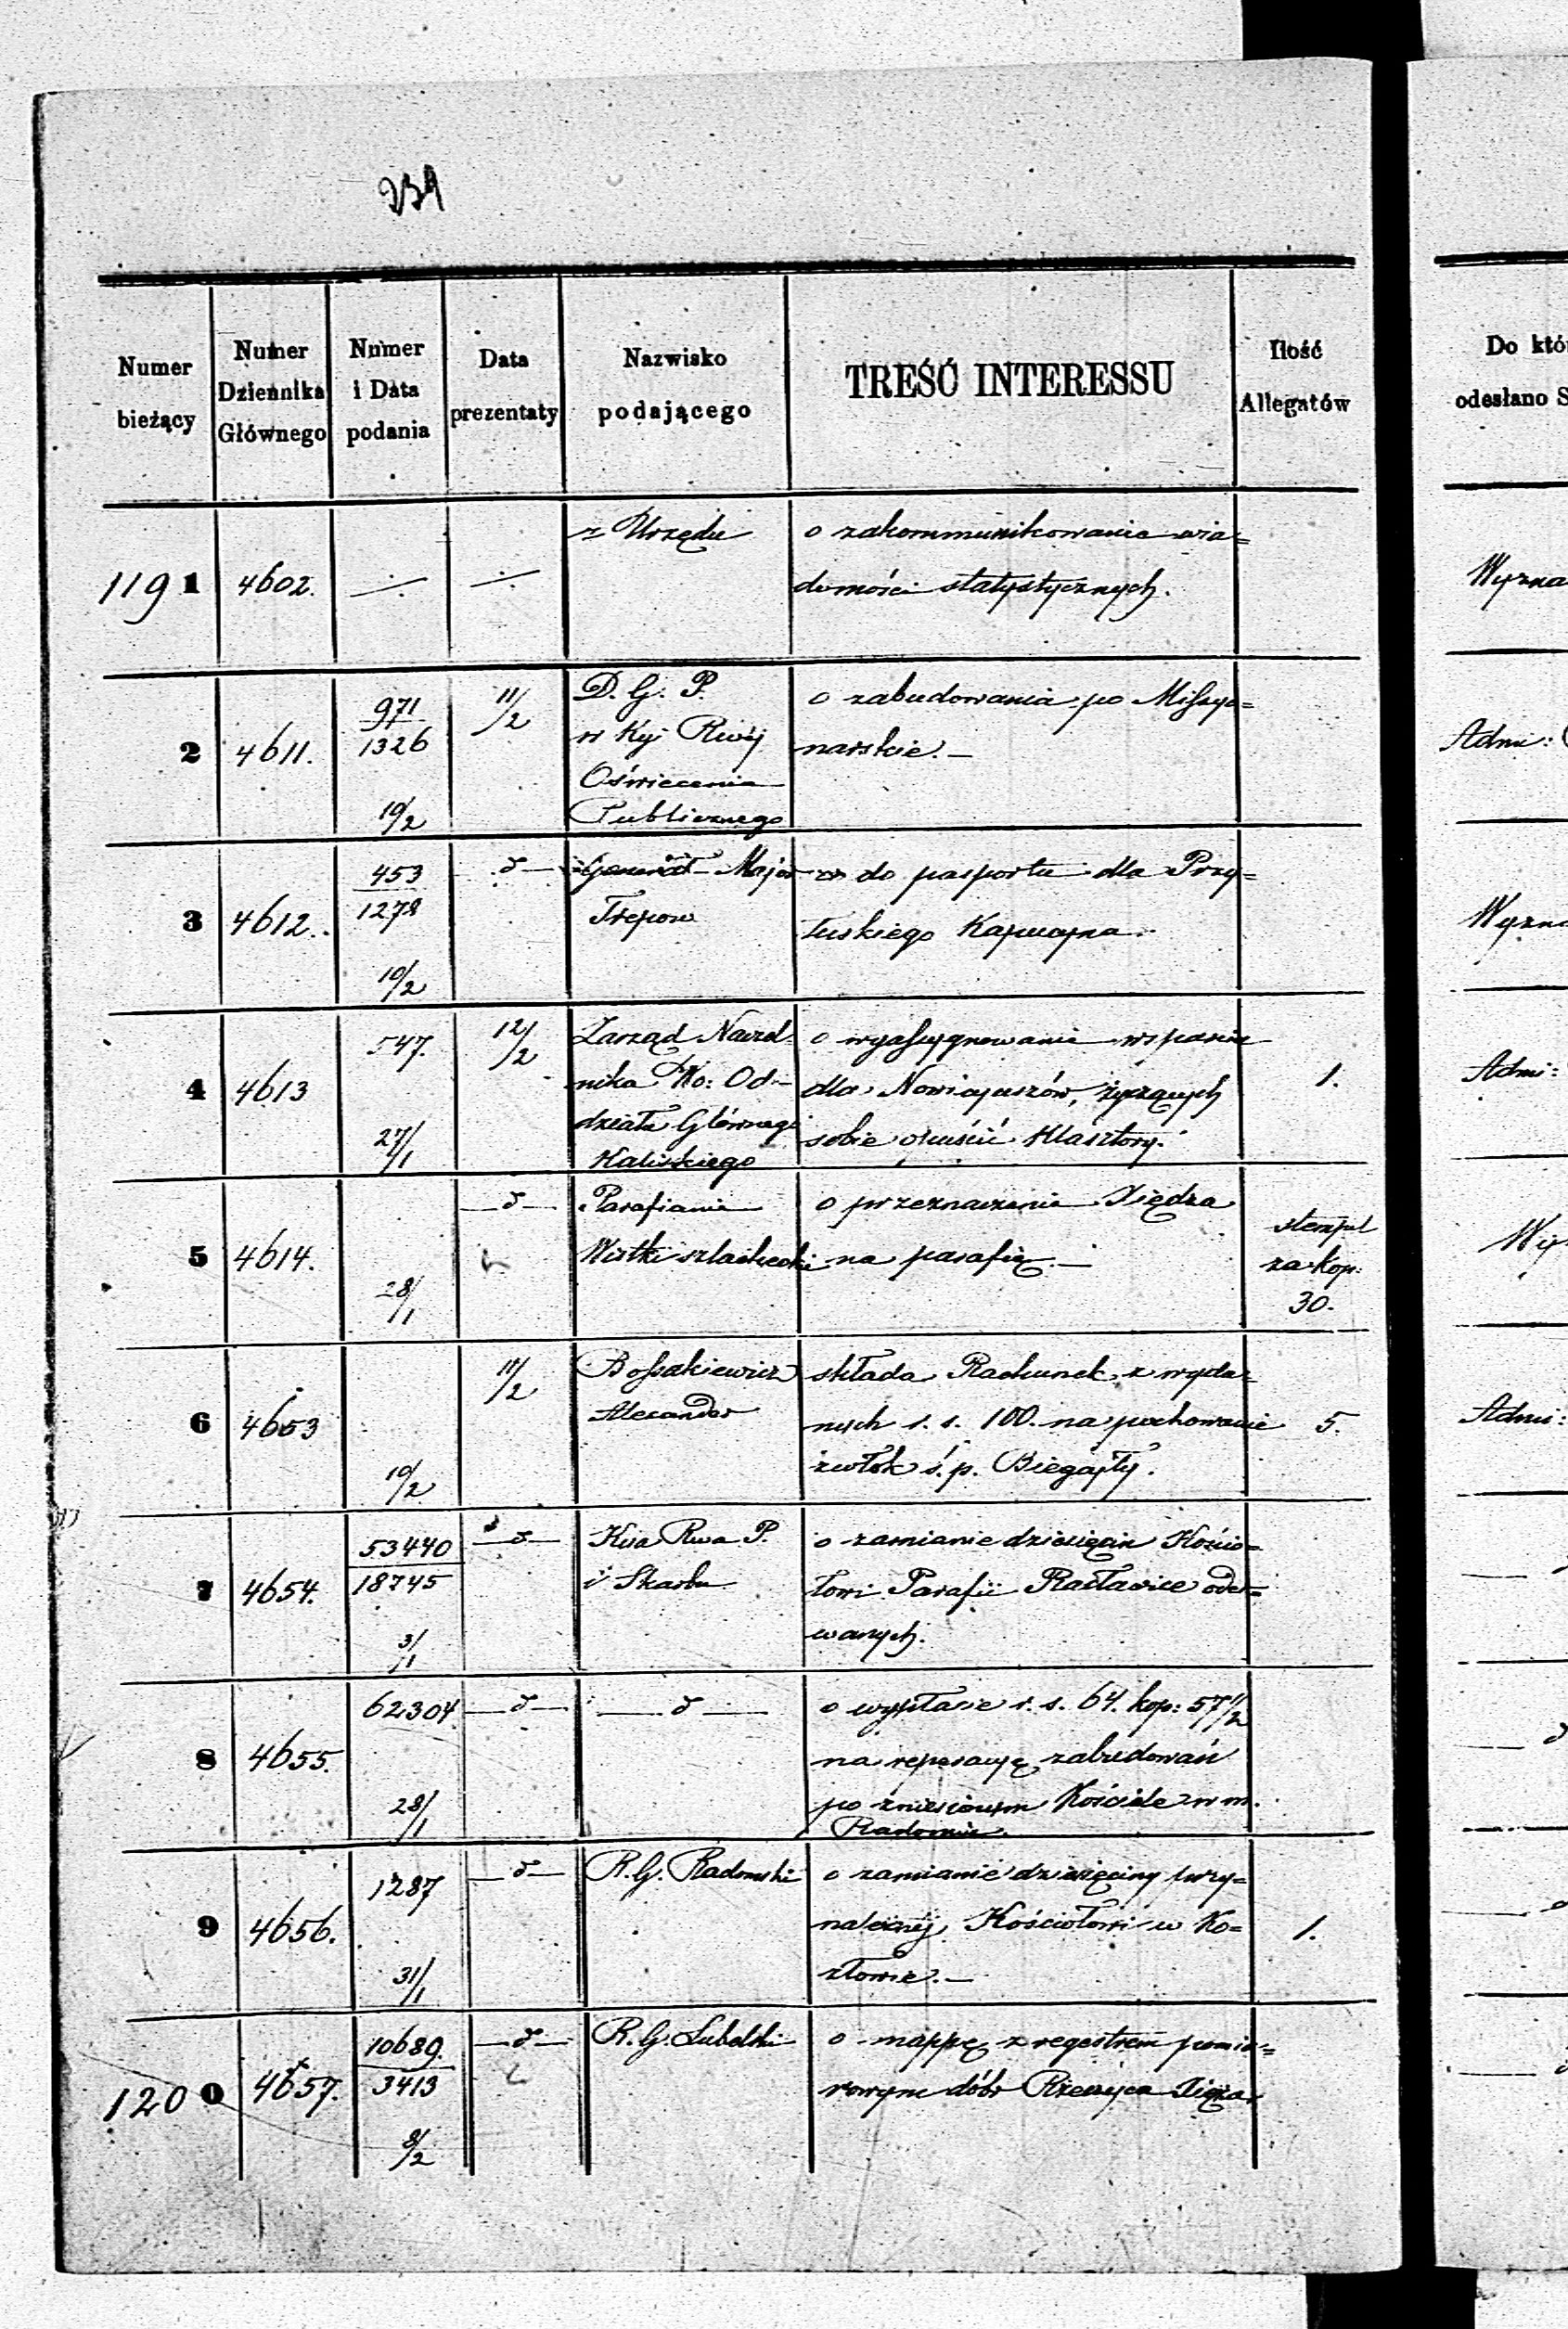 239
Numer bieżący
Numer Dziennika Głównego
Numer i Data podania
Data prezentaty
Nazwisko podającego
TREŚĆ INTERESSU
Ilość Allegatów
Do któ
odesłano S
1191 4602. ÷ ÷ z Urzędu o zakommunikowanie wia=
domości statystycznych.
Wyzna
2 4611. 971/1326 10/2 11/2 D. G. P.
w Kji Rwéj
Oświecenia
Publicznego
o zabudowania po Missyo=
narskie.—
Adm:
3 4612. 453/1278 10/2 d— Generał Major
Trepow
do pasportu dla Przy=
łuskiego Kapucyna
Wyzna
4 4613 547. 27/1 12/2 Zarząd Naczel=
nika Wo: Od=
działu Głównego
Kaliskiego
o wyassygnowanie wsparcia
dla Nowicyuszów, życzących
sobie opuścić Klasztory.
1.
Admi:
5 4614. 28/1 —d— Parafianie
Wistki szlacheckiej
o przeznaczenie Xiędza
na parafię.—
stempel
za kop:
30.
Wy
6 4653 10/2 11/2 Bossakiewicz
Alexander
składa Rachunek z wyda=
nych r. s. 100. na pochowanie
zwłok ś. p. Biegajły.
5.
Admi:
7 4654. 53440/18745 3/1 —d— Kssa Rwa P.
i Skarbu
o zamianie dziesięcin Kościo=
łowi Parafii Racławice oder=
wanych.
8 4655. 62304. 28/1 —d— —d— o wypłacie r. s. 64. kop: 57 1/2
na reperacyę zabudowań
po zniesionym Kościele w m.
Radomiu.
d
9 4656. 1287 31/1 —d— R. G. Radomski o zamianie dziesięciny przy=
należnej Kościołowi w Ko=
złowie.—
1.
1200 4657. 10689./3413 8/2 —d— R. G. Lubelski o mappę z regestrem pomia=
rowym dóbr Rzeczyca Xięża.